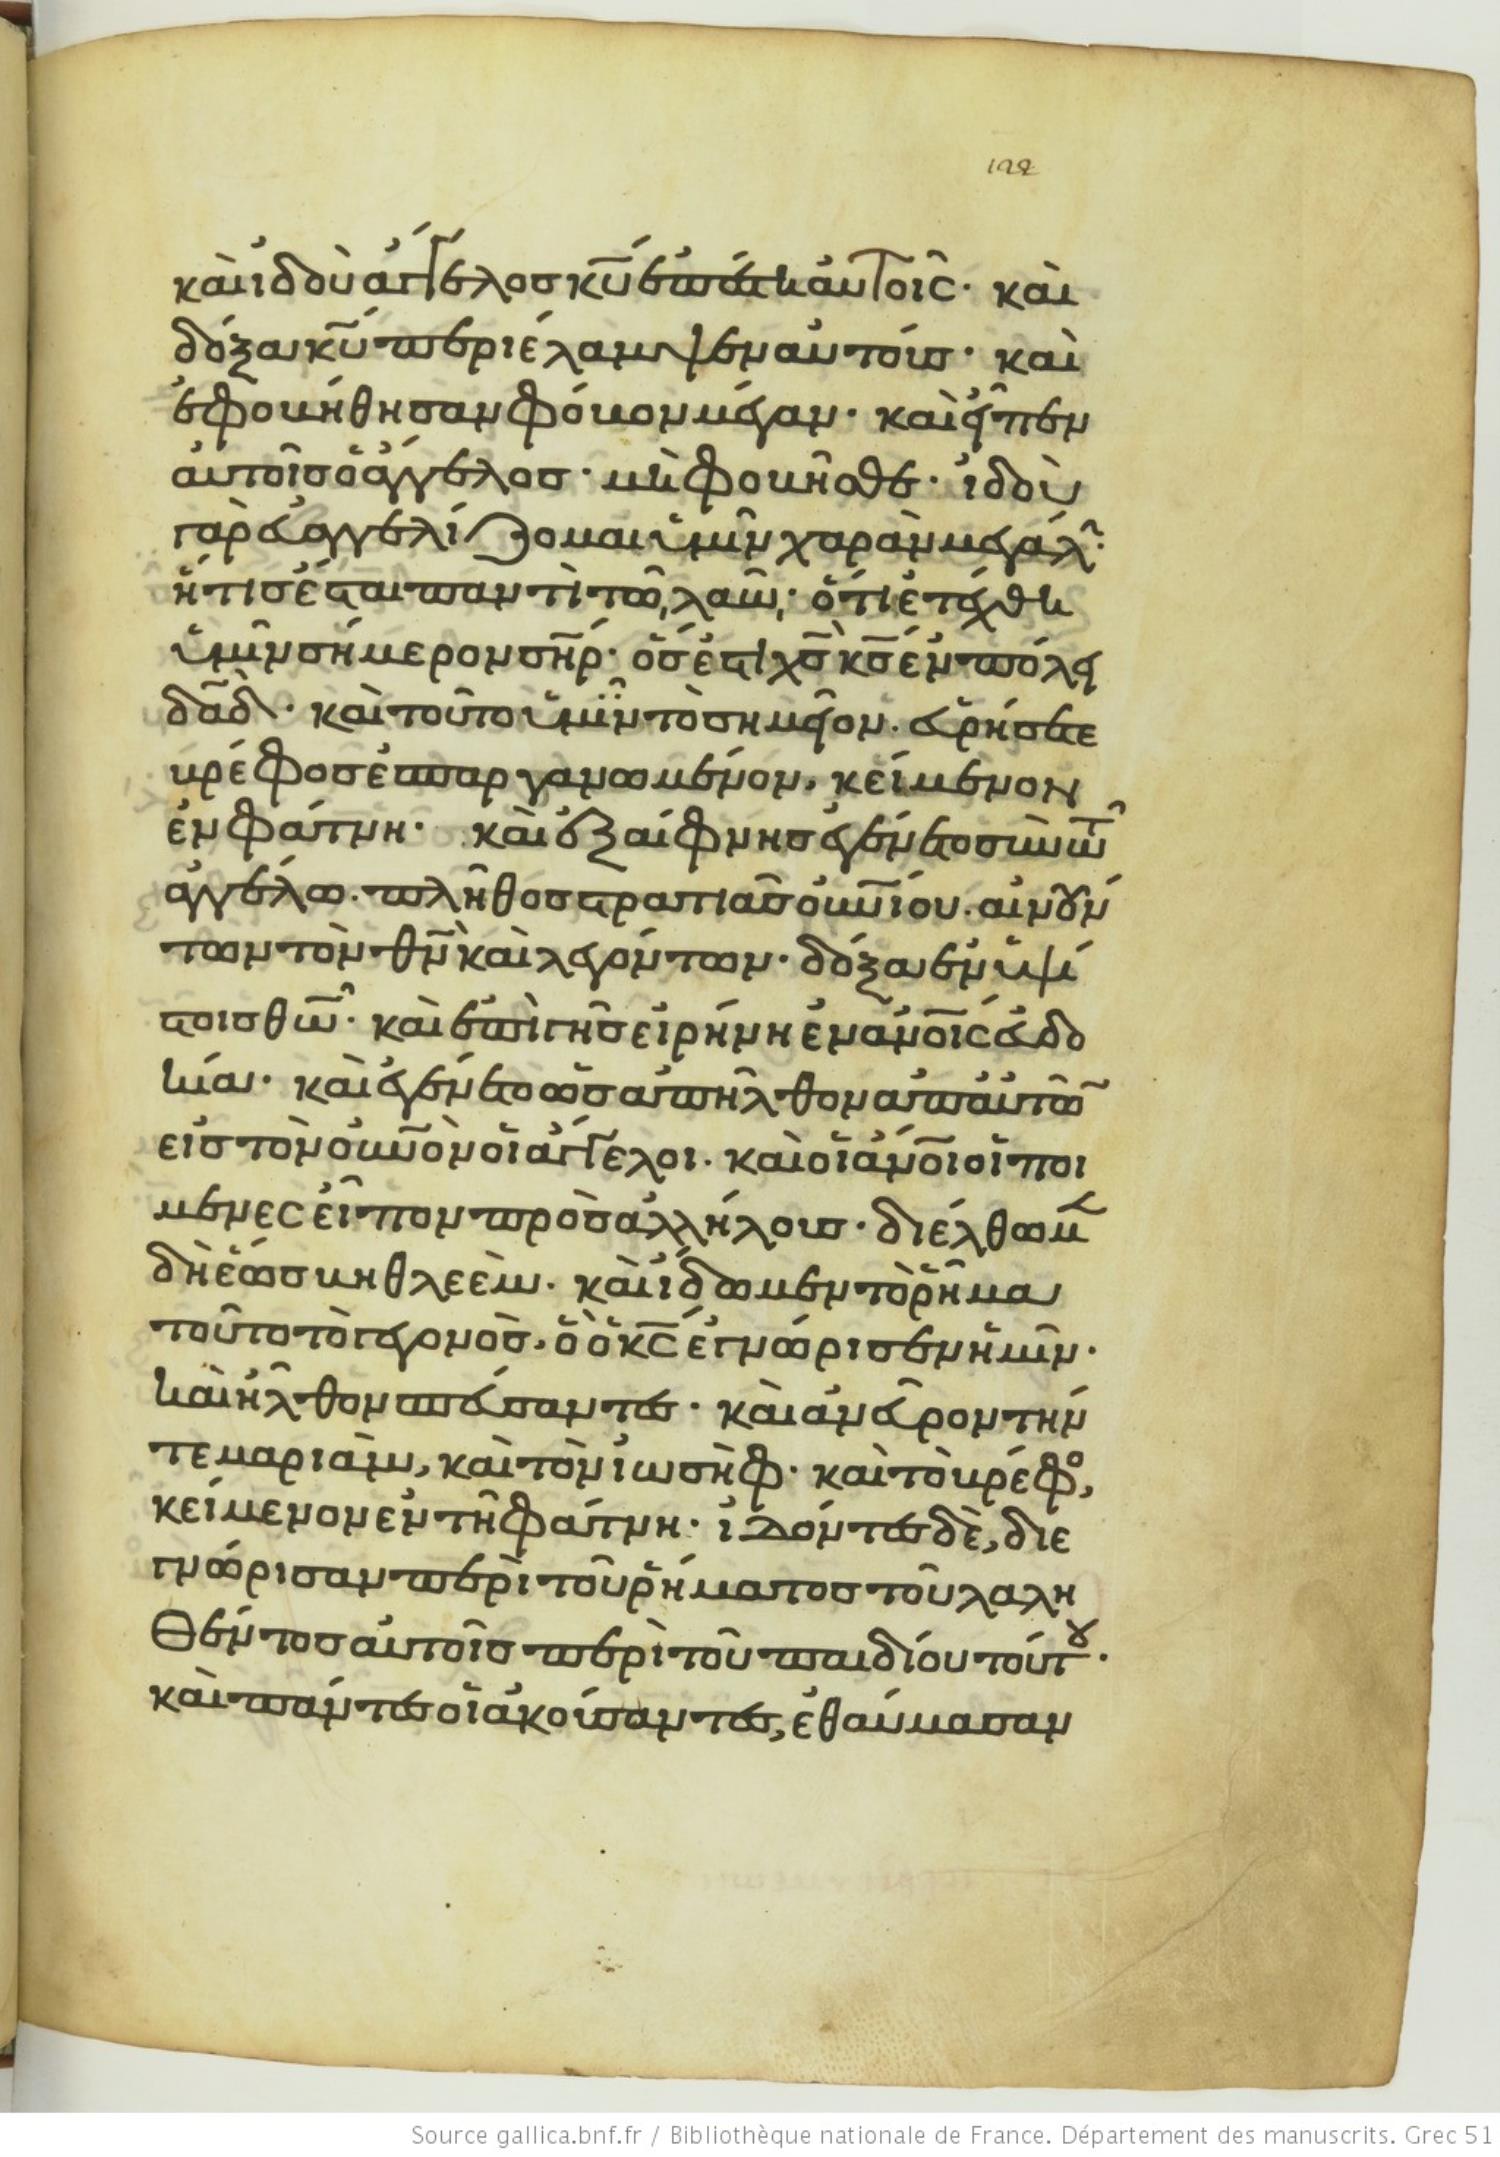 122
καὶ ἰδοὺ ἄγγελος κ̅υ̅ ἐπέστη αὐτοῖς· καὶ
δόξα κ̅υ̅ περιέλαμψεν αὐτούς· καὶ
ἐφοβήθησαν φόβον μέγαν· καὶ εἶπεν
αὐτοῖς ὁ ἄγγελος· μὴ φοβεῖσθε· ἰδοὺ
γὰρ εὐαγγελίζομαι ὑμῖν χαρὰν μεγάλ·
ἥτις ἔσται παντὶ τῶ λαῶ· ὅτι ἐτέχθη
ὑμῖν σήμερον σ̅η̅ρ̅· ὅς ἐστι χ̅ς̅ κ̅ς̅ ἐν πόλει
δ̅α̅δ̅· καὶ τοῦτο ὑμῖν τὸ σημεῖον. εὑρήσετε
βρέφος ἐσπαργανωμένον, κείμενον
ἐν φάτνη· καὶ ἐξαίφνης ἐγένετο σὺν τῶ
ἀγγέλω. πλῆθος στρατιᾶς οὐ̅ν̅ίου. αἰνούν
των τὸν θ̅ν̅ καὶ λεγόντων· δόξα ἐν ὑψί
στοις θ̅ω̅· καὶ ἐπὶ γῆς εἰρήνη ἐν ἀ̅ν̅ο̅ι̅ς εὐδο
κία· καὶ ἐγένετο ὡς ἀπῆλθον ἀπ αὐτῶ
εἰς τὸν οὐ̅ν̅ὸν οἱ ἄγγελοι. καὶ οἱ ἄ̅ν̅ο̅ι̅ οἱ ποι
μένες εἶπον πρὸς ἀλλήλους· διέλθωμ
δὴ ἕως βηθλεὲμ. καὶ ἴδωμεν τὸ ῥῆμα
τοῦτο τὸ γεγονὸς, ὃ ὁ κ̅ς̅ ἐγνώρισεν ἡμῖν·
καὶ ἦλθον σπεύσαντες· καὶ ἀνεῦρον τήν
τε μαριὰμ, καὶ τὸν ἰωσὴφ· καὶ τὸ βρέφο,
κείμενον ἐν τῆ φάτνη· ἰδόντες δὲ, διε
γνώρισαν περὶ τοῦ ῥήματος τοῦ λαλη
θέντος αὐτοῖς περὶ τοῦ παιδίου τούτου·
καὶ πάντες οἱ ἀκούσαντες, ἐθαύμασαν
Source gallica.bnf.fr / Bibliothèque nationale de France. Département des manuscrits. Grec 51